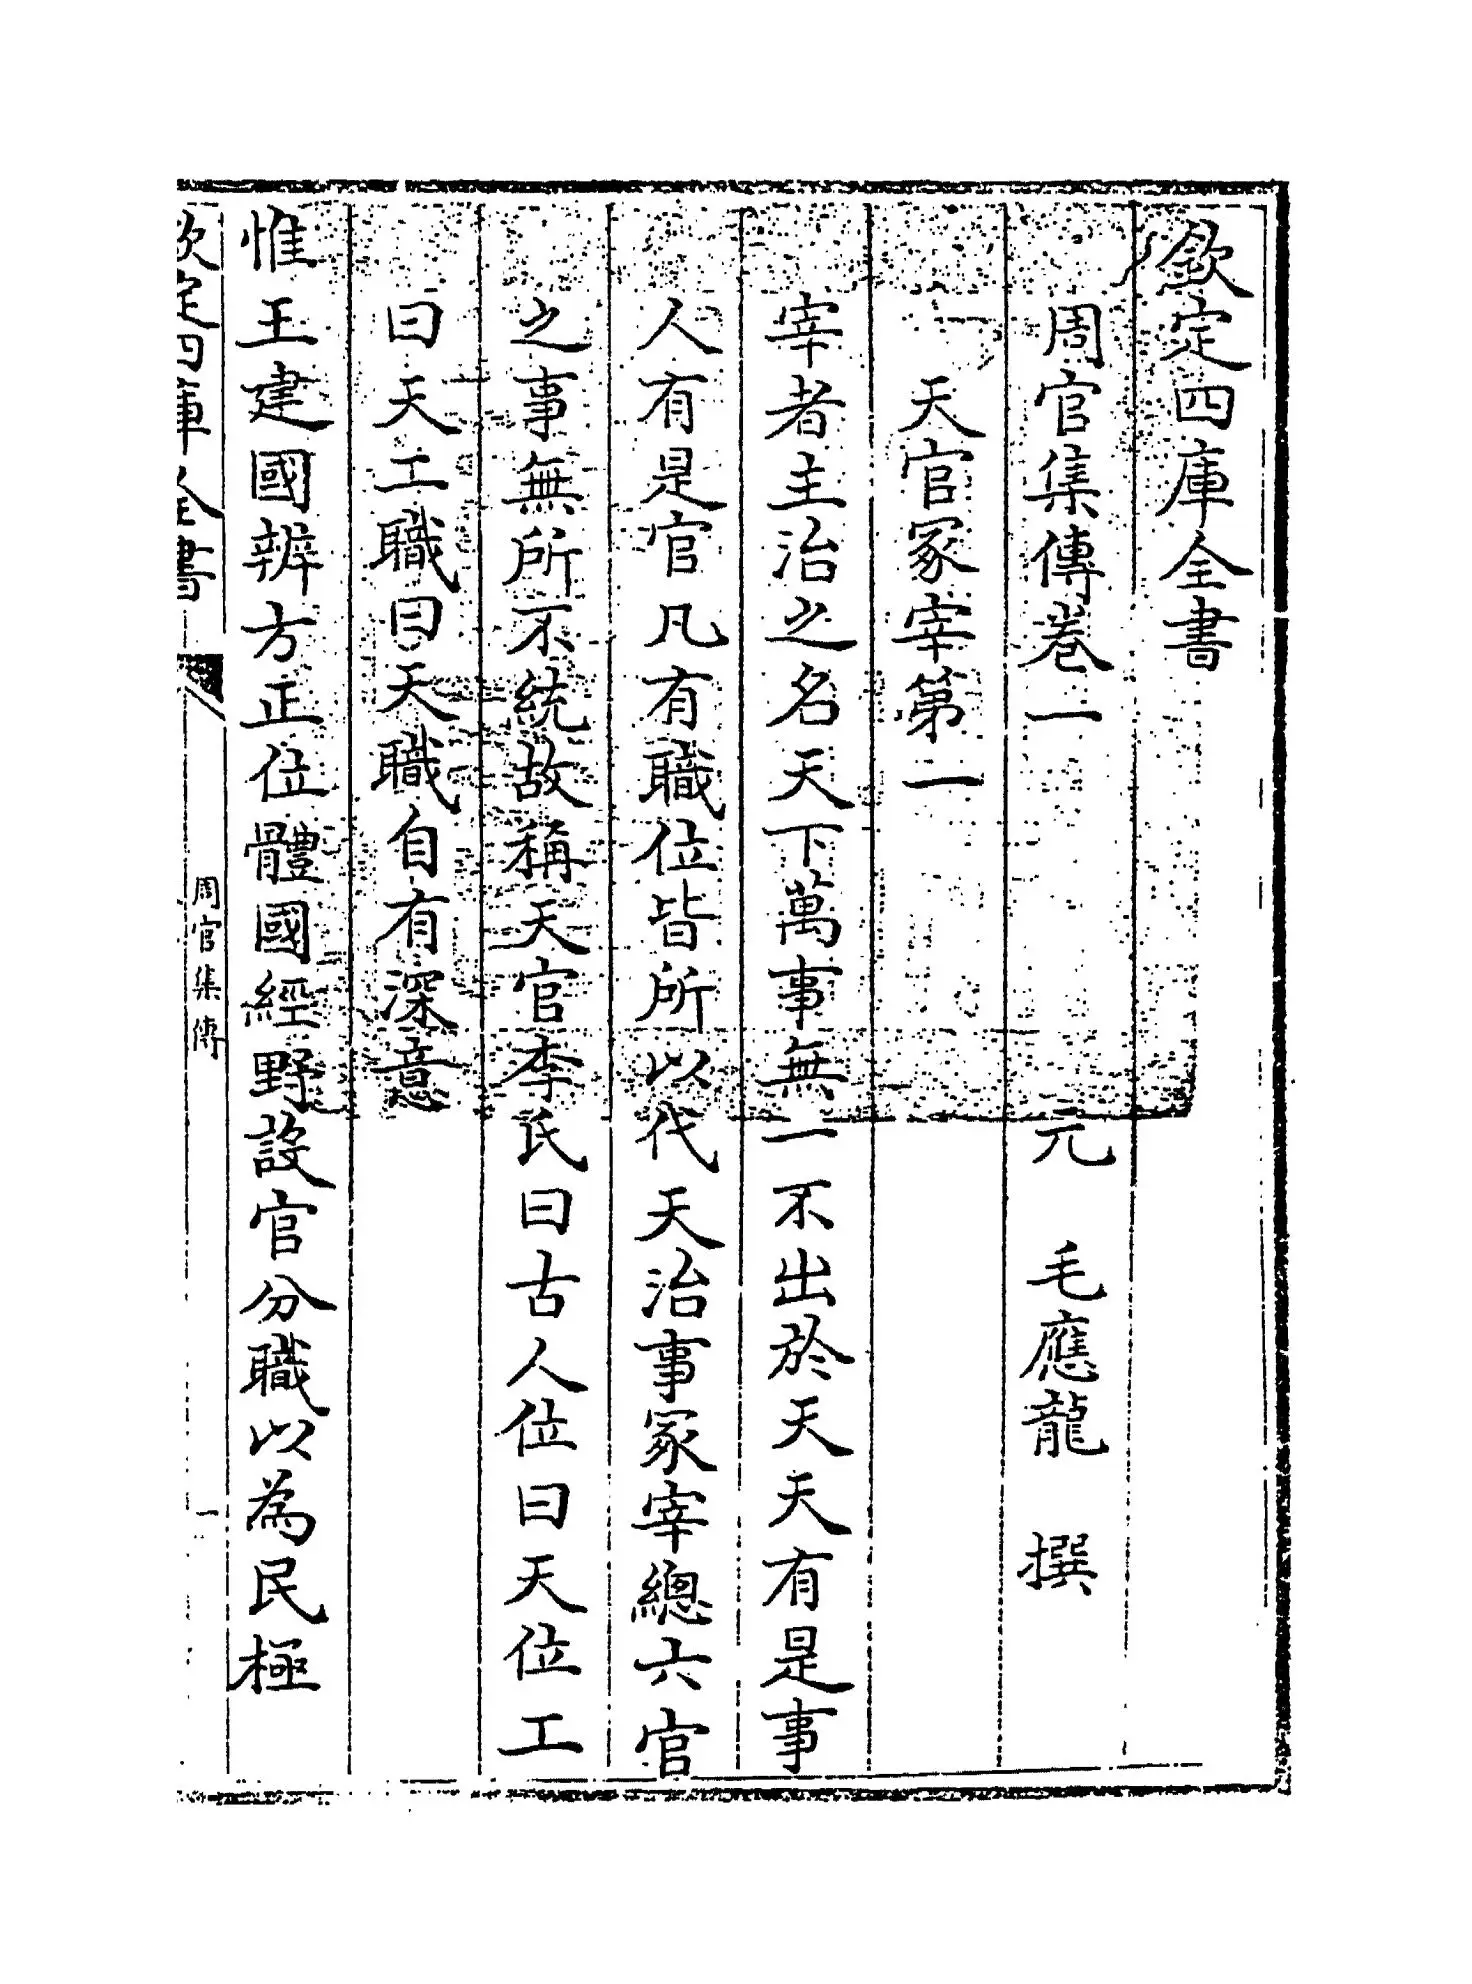 欽定四庫全書
周官集傳卷一
元 毛應龍 撰
天官冢宰第一
宰者主治之名天下萬事無一不出於天天有是事
人有是官凡有職位皆所以代天治事冢宰總六官
之事無所不統故稱天官李氏曰古人位曰天位工
曰天工職曰天職自有深意
惟王建國辨方正位體國經野設官分職以為民極
欽定四庫全書
周官集傳
一